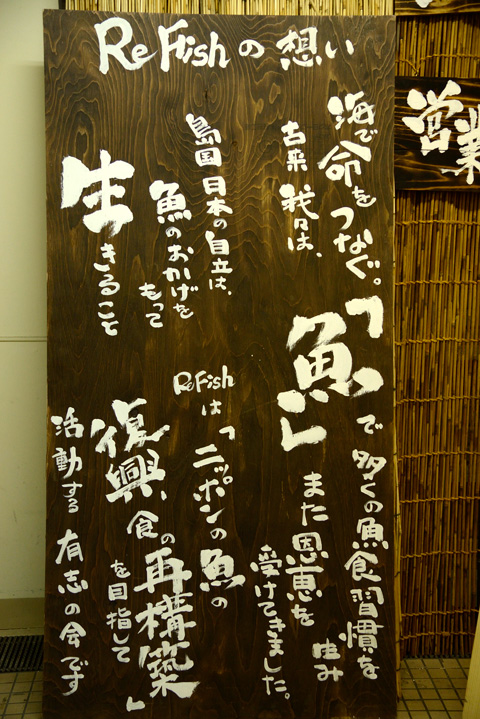 ReFishの想い
海で命をつなぐ。
古来 我々は、
「魚」で多くの魚食習慣を
生み
また恩恵を
受けてきました。
島国 日本の自立は、
魚のおかげを
もって
生きること
ReFish
は「ニッポンの魚の
復興、食の再構築」
を目指して
活動する 有志の会です
営業